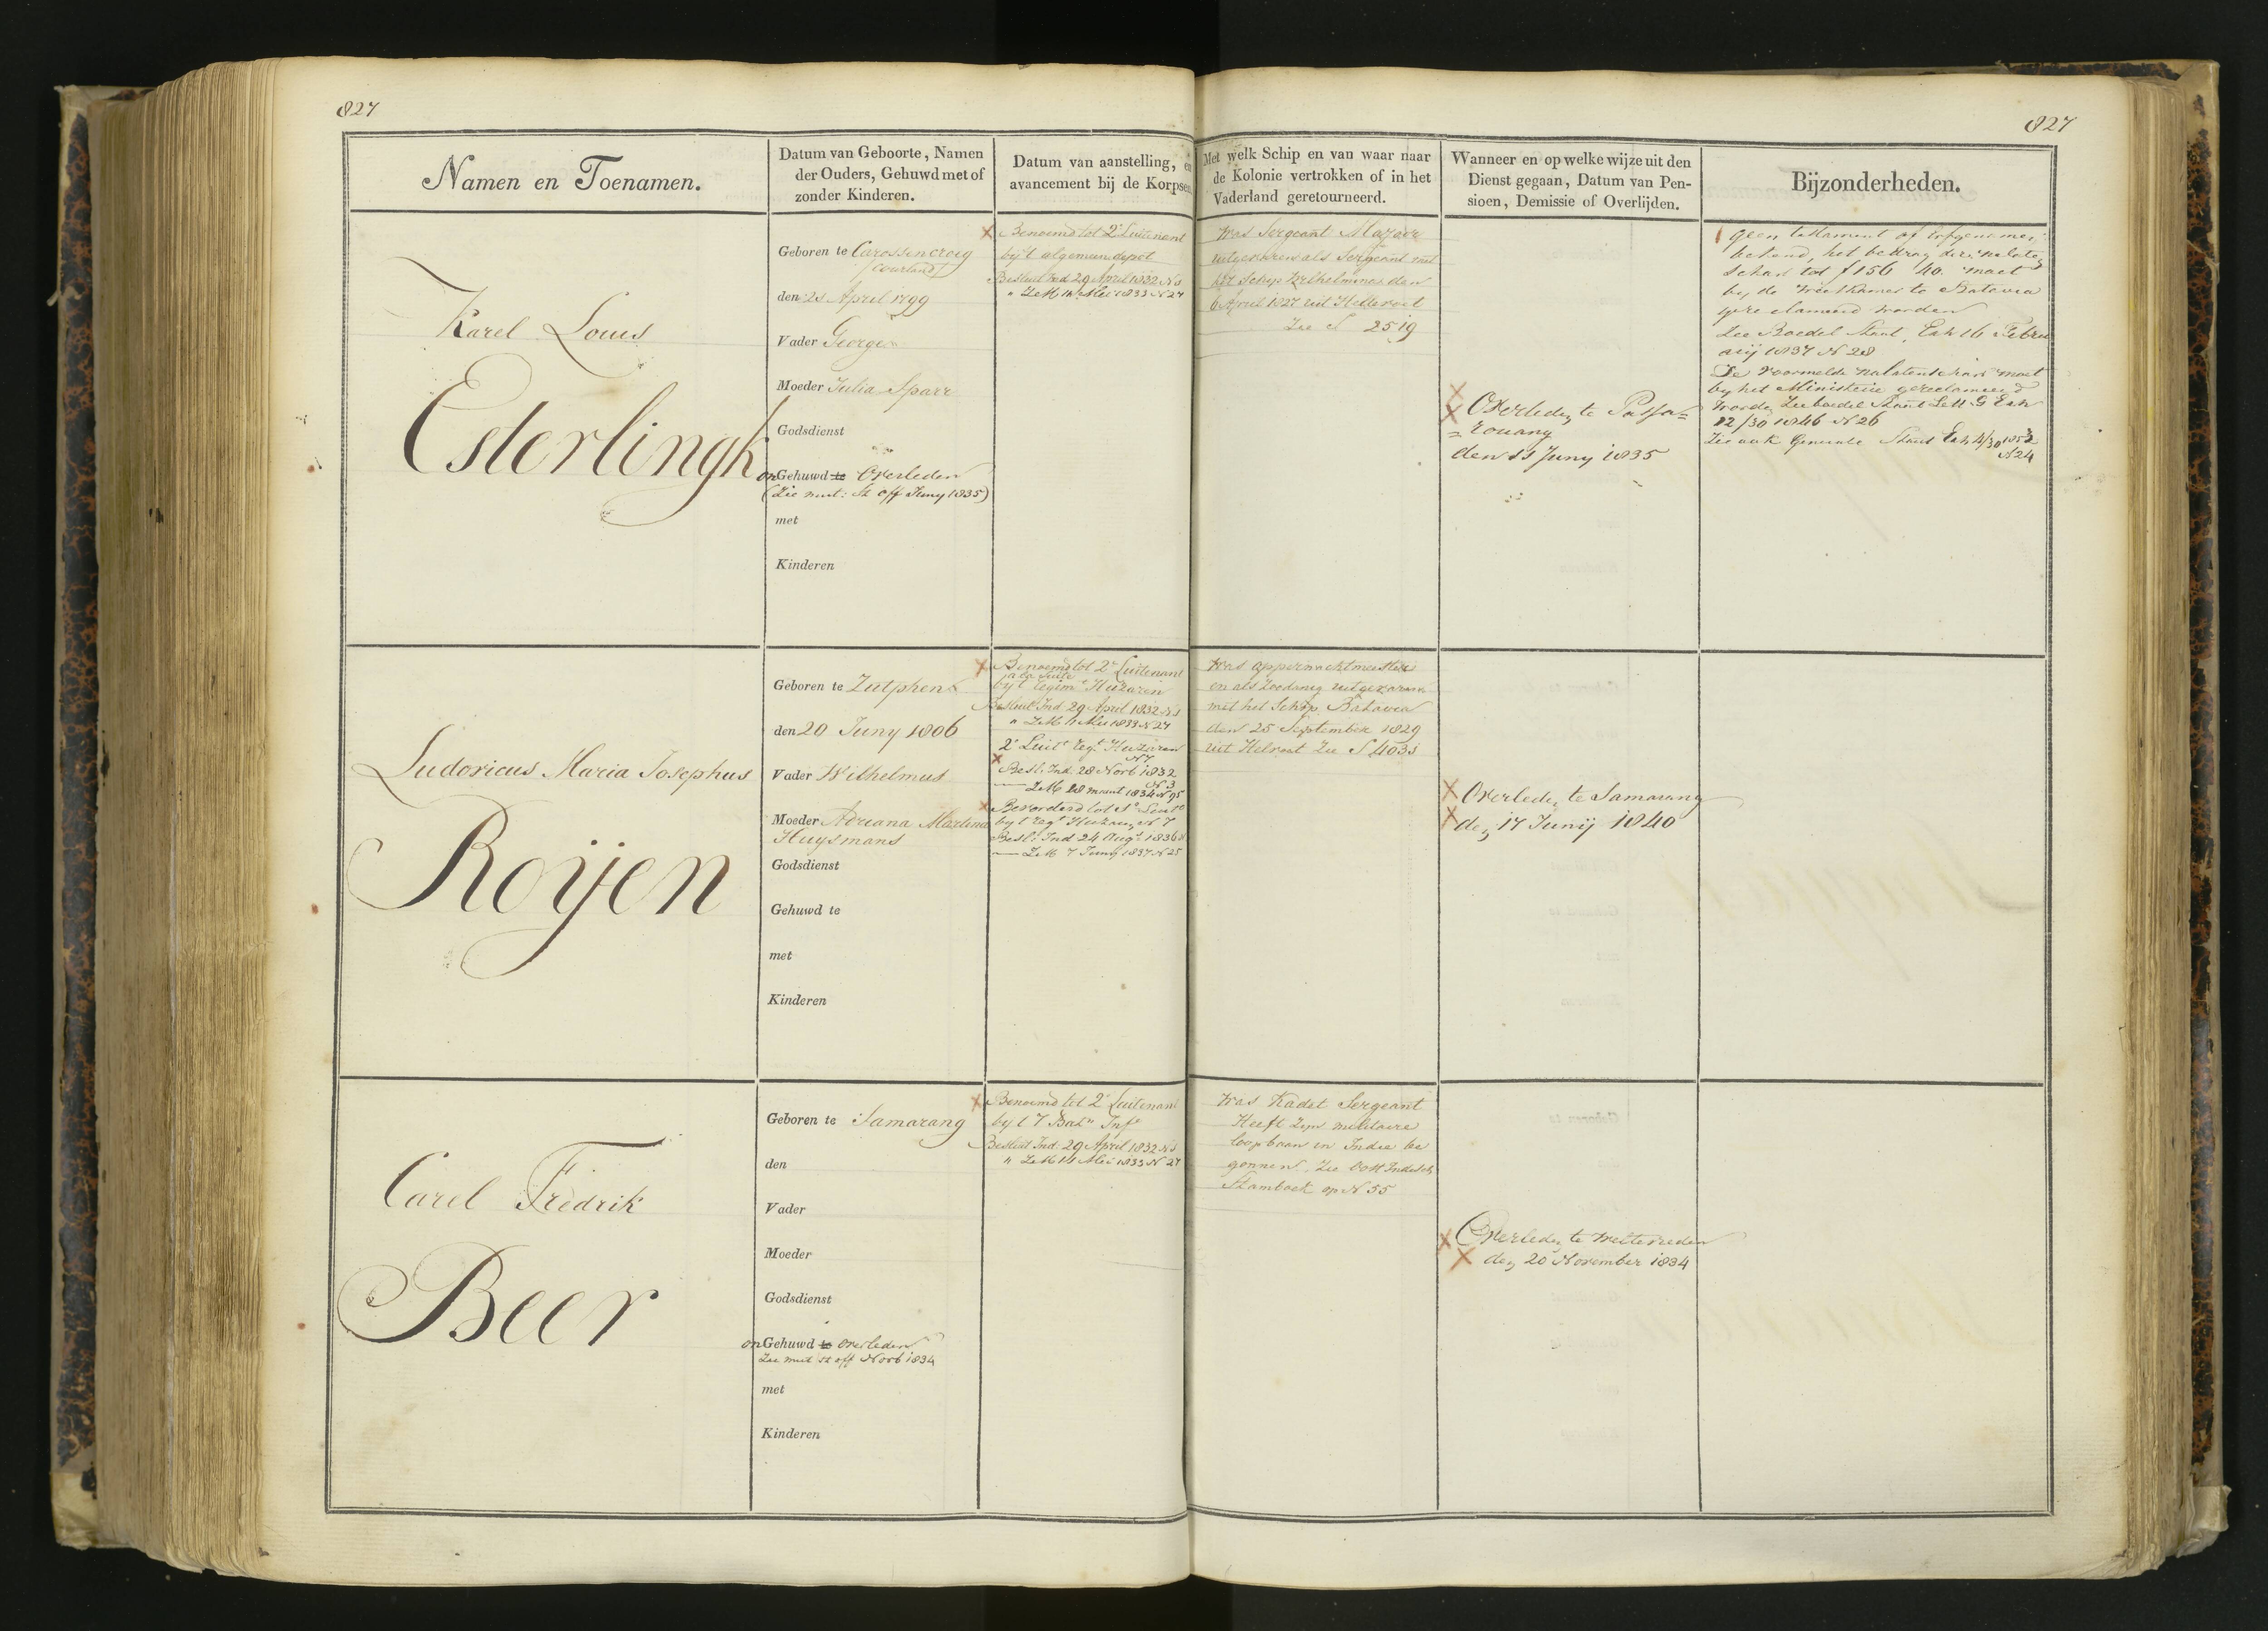 827
827
Namen en Toenamen.
Datum van Geboorte, Namen
der Ouders, Gehuwd met of
zonder Kinderen.
Datum van aanstelling, en
avancement bij de Korpsen
Met welk Schip en van waar naar
de Kolonie vertrokken of in het
Vaderland geretourneerd.
Wanneer en op welke wijze uit den
Dienst gegaan, Datum van Pen-
sioen, Demissie of Overlijden.
Bijzonderheden.
Karel Louis
Esterlingh
Geboren te Carossencroeg
(Courland)
den 21 April 1799
Vader George
Moeder Julia Sparr
Godsdienst
on Gehuwd te Overleden
(Zie mut: St off Juny 1835)
met
Kinderen
Benoemd tot 2e Luitenant
by't algemeen depot
Besluit Ind 29 April 1832 N 1
" ZeM 11 Mei 1833 N 27
Was Sergeant Majoor
uitgevaren als Sergeant met
het Schip Wilhelmina den
6 April 1827 uit Hellevoet
Zie S 2519
Overleden te Passa=
=rouang
den 11 Juny 1835
geen testament of erfgenamen
bekend, het bedrag der nalaten
schap tot f 156 40. moet
by de Weeskamer te Batavia
gereclameerd worden
Zie Boedel Staat, Exh 16 Febru
arij 1837 N 28
De voormelde nalatenschap moet
by het Ministerie gereclameerd
worden Zie boedel Staat Lett G Exh
12/30 1846 N 26
Zie ook Generale Staat Exh 4/30 1852
N 24
Ludovicus Maria Josephus
Roijen
Geboren te Zutphen
den 20 Juny 1806
Vader Wilhelmus
Moeder Adriana Martina
Huysmans
Godsdienst
Gehuwd te
met
Kinderen
Benoemd tot 2e Luitenant
a la Suite
by't Regimt Huzaren
Besluit Ind 29 April 1832 N 1
" ZeM 11 Mei 1833 N 27
2e Luitt Regt Huzaren
N 7
Besl. Ind 28 Novb 1832
N 3
ZeM 28 maart 1834 N 95
Bevorderd tot 1e Luitt
by't Regt Huzaren N 7
Besl: Ind 24 Augt 1836
ZeM 7 Juny 1837 N 25
Was opperwachtmeester
en als zoodanig uitgevaren
met het Schip Batavia
den 25 September 1829
uit Helvoet Zie S 4031
Overleden te Samarang
den 17 Junij 1840
Carel Fredrik
Beer
Geboren te Samarang
den
Vader
Moeder
Godsdienst
on Gehuwd te overleden
Zie mut st off Novb 1834
met
Kinderen
Benoemd tot 2e Luitenant
by't 7 Baln Infe
Besluit Ind 29 April 1832 N 1
" ZeM 11 Mei 1833 N 27
Was Kadet Sergeant
Heeft Zyn militaire
loopbaan in Indie be
gonnen, Zie Oost Indisch
Stamboek op N 55
Overleden te Weltevreden
den 20 November 1834